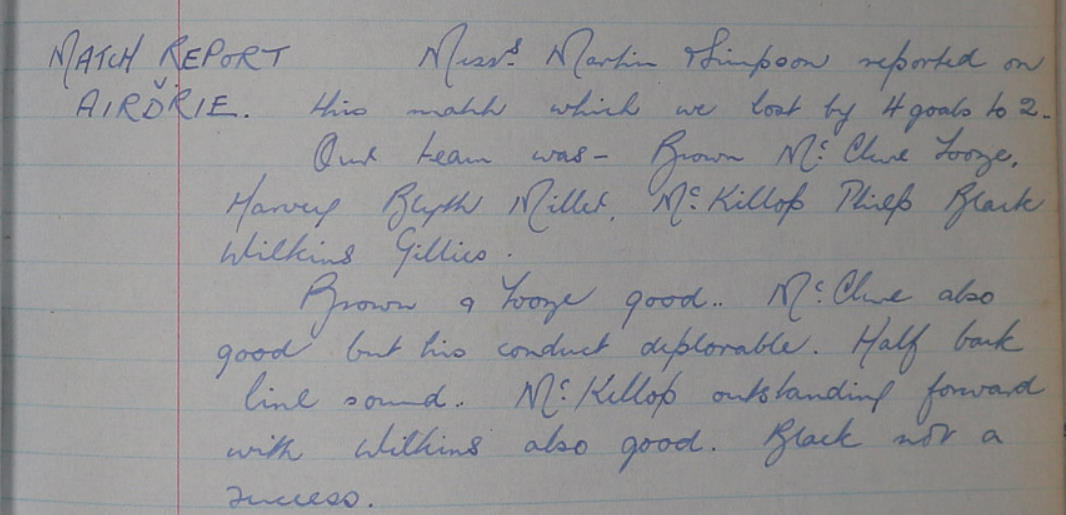 MATCH REPORT Messrs Martin & Simpson reported on
v AIRDRIE. this match which we lost by 4 goals to 2.
Our team was - Brown McClure Looze,
Harvey Blyth Millet, McKillop Philp Black
Wilkins Gillies.
Brown & Looze good.. McClure also
good but his conduct deplorable. Half back
line sound.. McKillop outstanding forward
with Wilkins also good. Black not a
success.